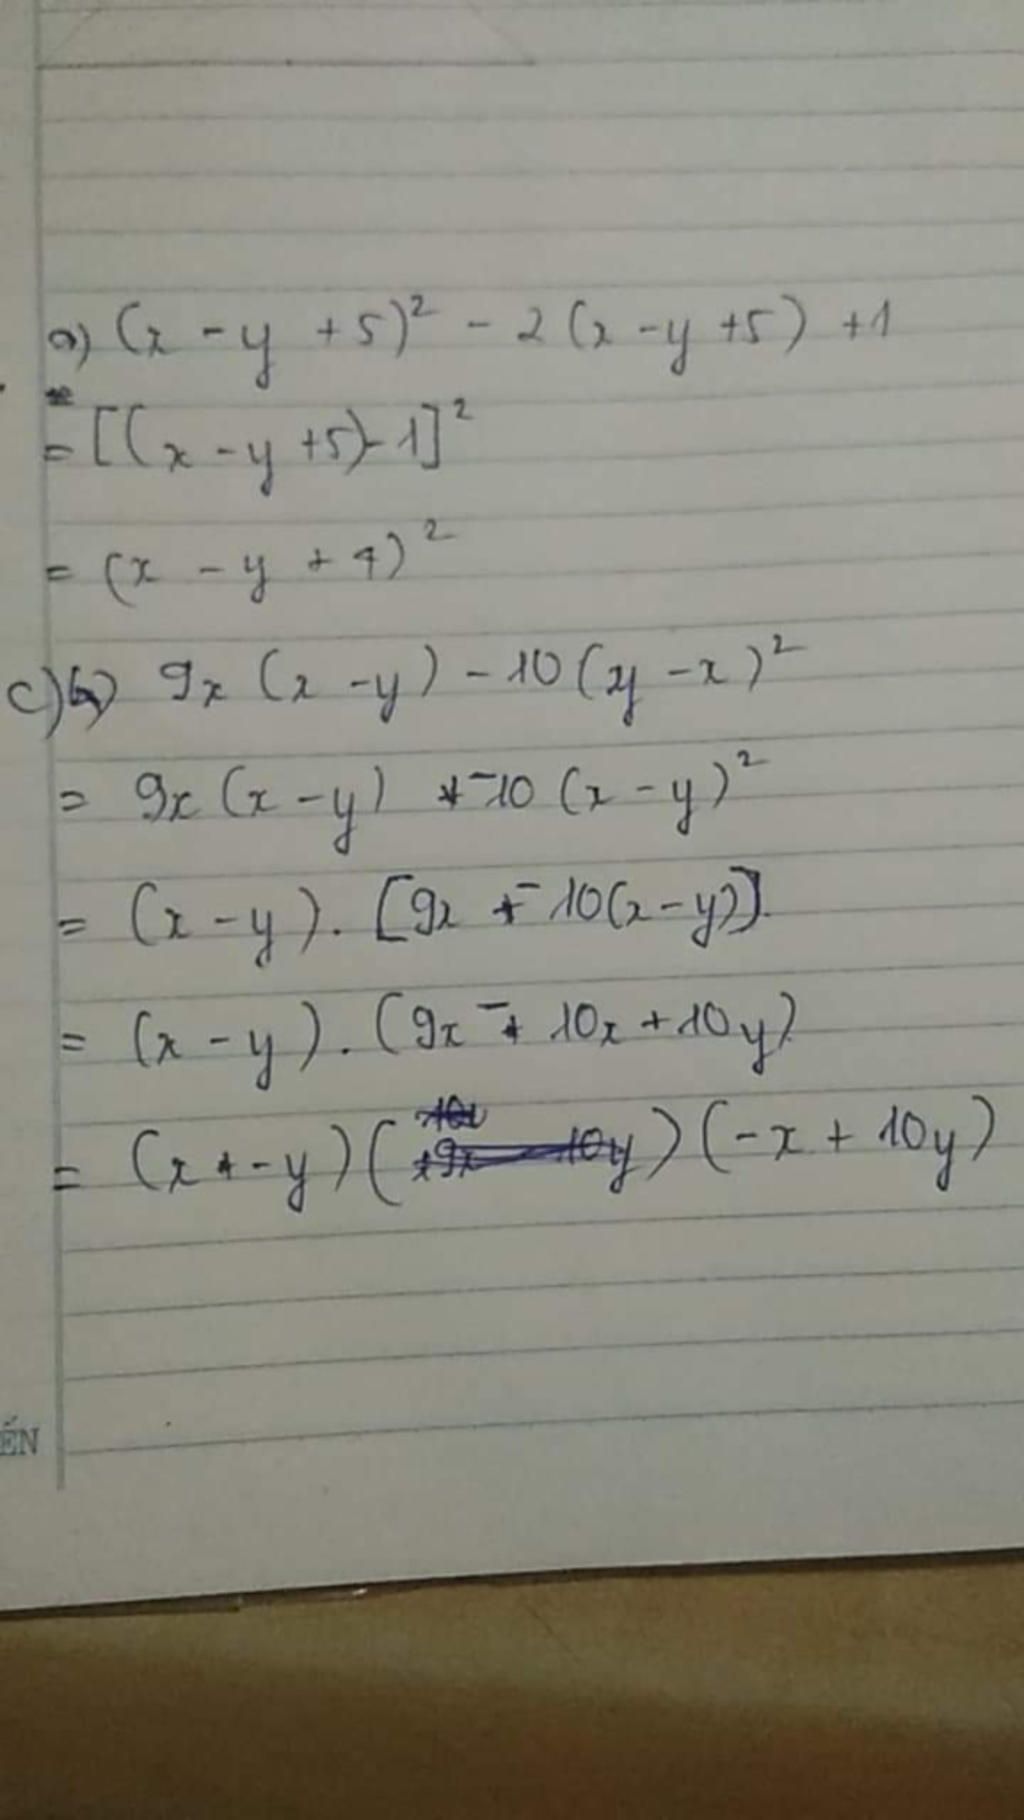 a) (x - y + 5)² - 2(x - y + 5) + 1
= [(x - y + 5) - 1]²
= (x - y + 4)²
c) 9x (x - y) - 10 (y - x)²
= 9x (x - y) - 10 (x - y)²
= (x - y) . [9x - 10(x - y)]
= (x - y) . (9x - 10x + 10y)
= (x - y) (-x + 10y)
ẾN